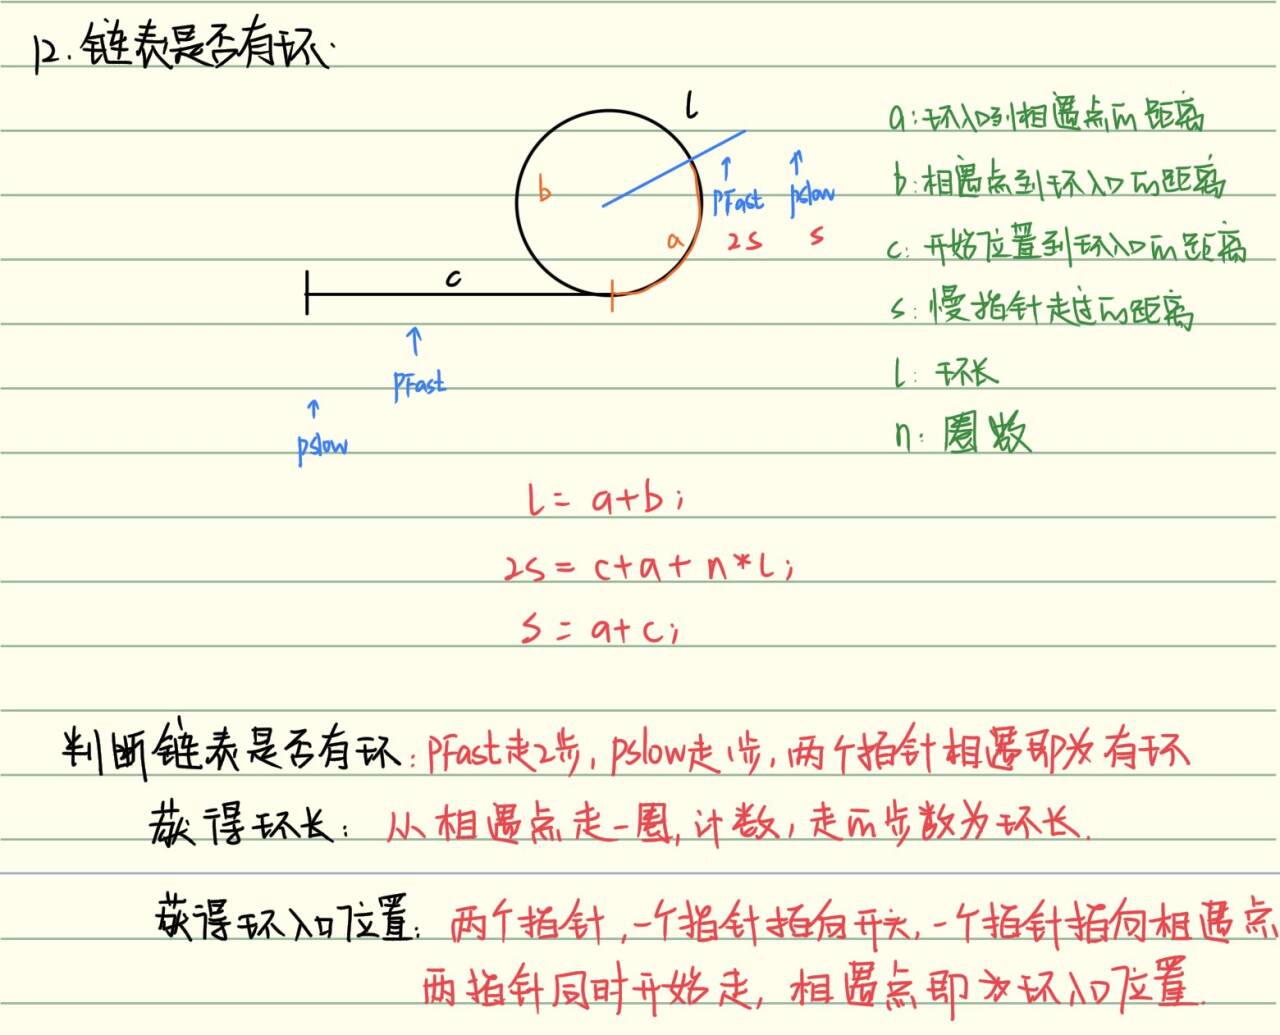 12. 链表是否有环.
l
a:环入口到相遇点的距离
b
pFast
pslow
b:相遇点到环入口的距离
a
2s
s
c
c:开始位置到环入口的距离
s:慢指针走过的距离
pFast
l:环长
pslow
n:圈数
l= a+b;
2s= c+a+ n*l;
s= a+c;
判断链表是否有环:pFast走2步,pslow走1步,两个指针相遇即为有环
获得环长:从相遇点走一圈,计数,走的步数为环长.
获得环入口位置:两个指针,一个指针指向开头,一个指针指向相遇点
两指针同时开始走,相遇点即为环入口位置.